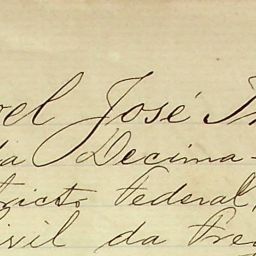 el José Th
da Decima-
tricto Federal,
ivil da Freg